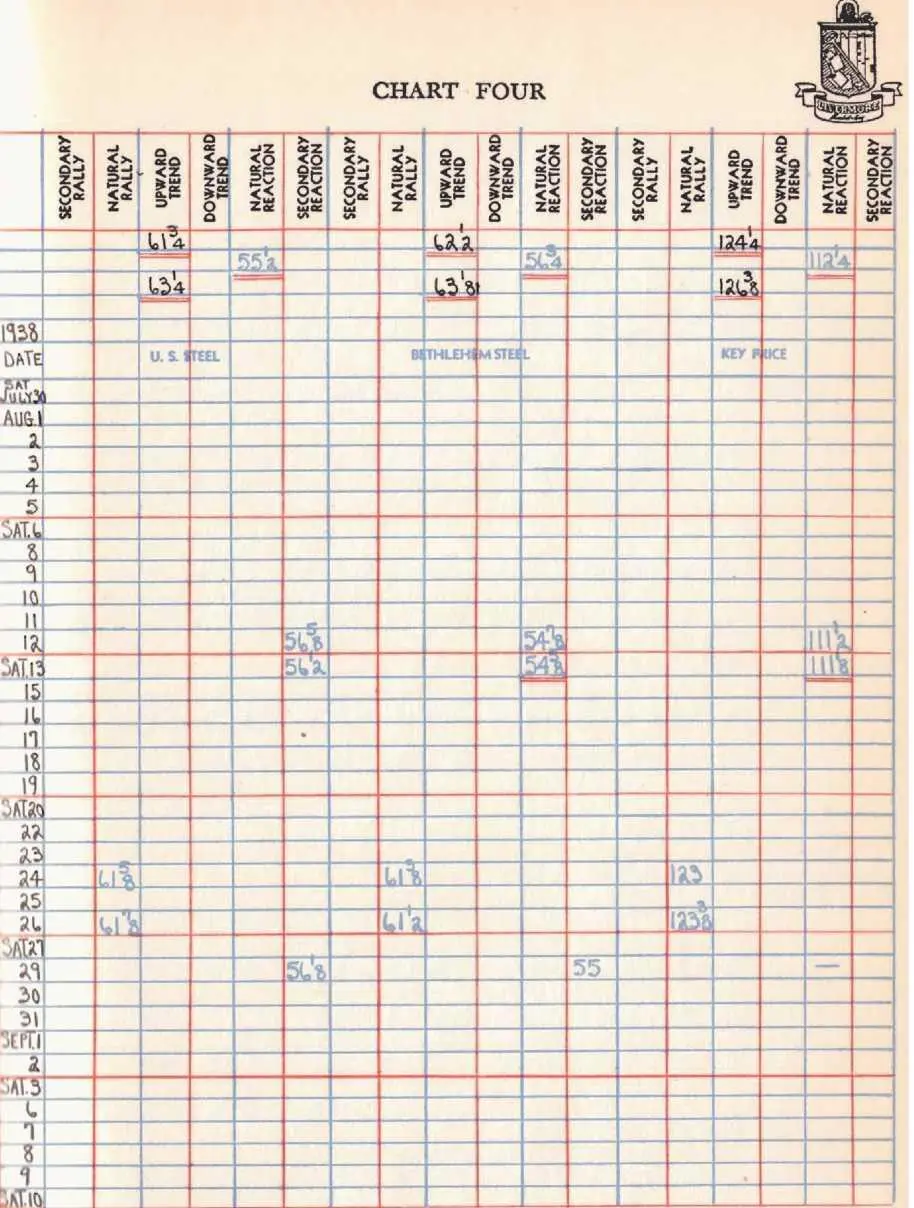 LIVERMORE
CHART FOUR
SECONDARY RALLY NATURAL RALLY UPWARD TREND DOWNWARD TREND NATURAL REACTION SECONDARY REACTION SECONDARY RALLY NATURAL RALLY UPWARD TREND DOWNWARD TREND NATURAL REACTION SECONDARY REACTION SECONDARY RALLY NATURAL RALLY UPWARD TREND DOWNWARD TREND NATURAL REACTION SECONDARY REACTION
61 3/4 62 1/2 124 1/4
55 1/2 56 3/4 112 1/4
63 1/4 63 1/8 126 3/8
1938
DATE U. S. STEEL BETHLEHEM STEEL KEY PRICE
SAT
JULY 30
AUG.1
2
3
4
5
SAT.6
8
9
10
11
12 56 5/8 54 7/8 111 1/2
SAT.13 56 1/2 54 5/8 111 1/8
15
16
17
18
19
SAT20
22
23
24 61 5/8 61 3/8 123
25
26 61 7/8 61 1/2 123 3/8
SAT27
29 56 1/8 55 —
30
31
SEPT.1
2
SAT.3
6
7
8
9
SAT.10